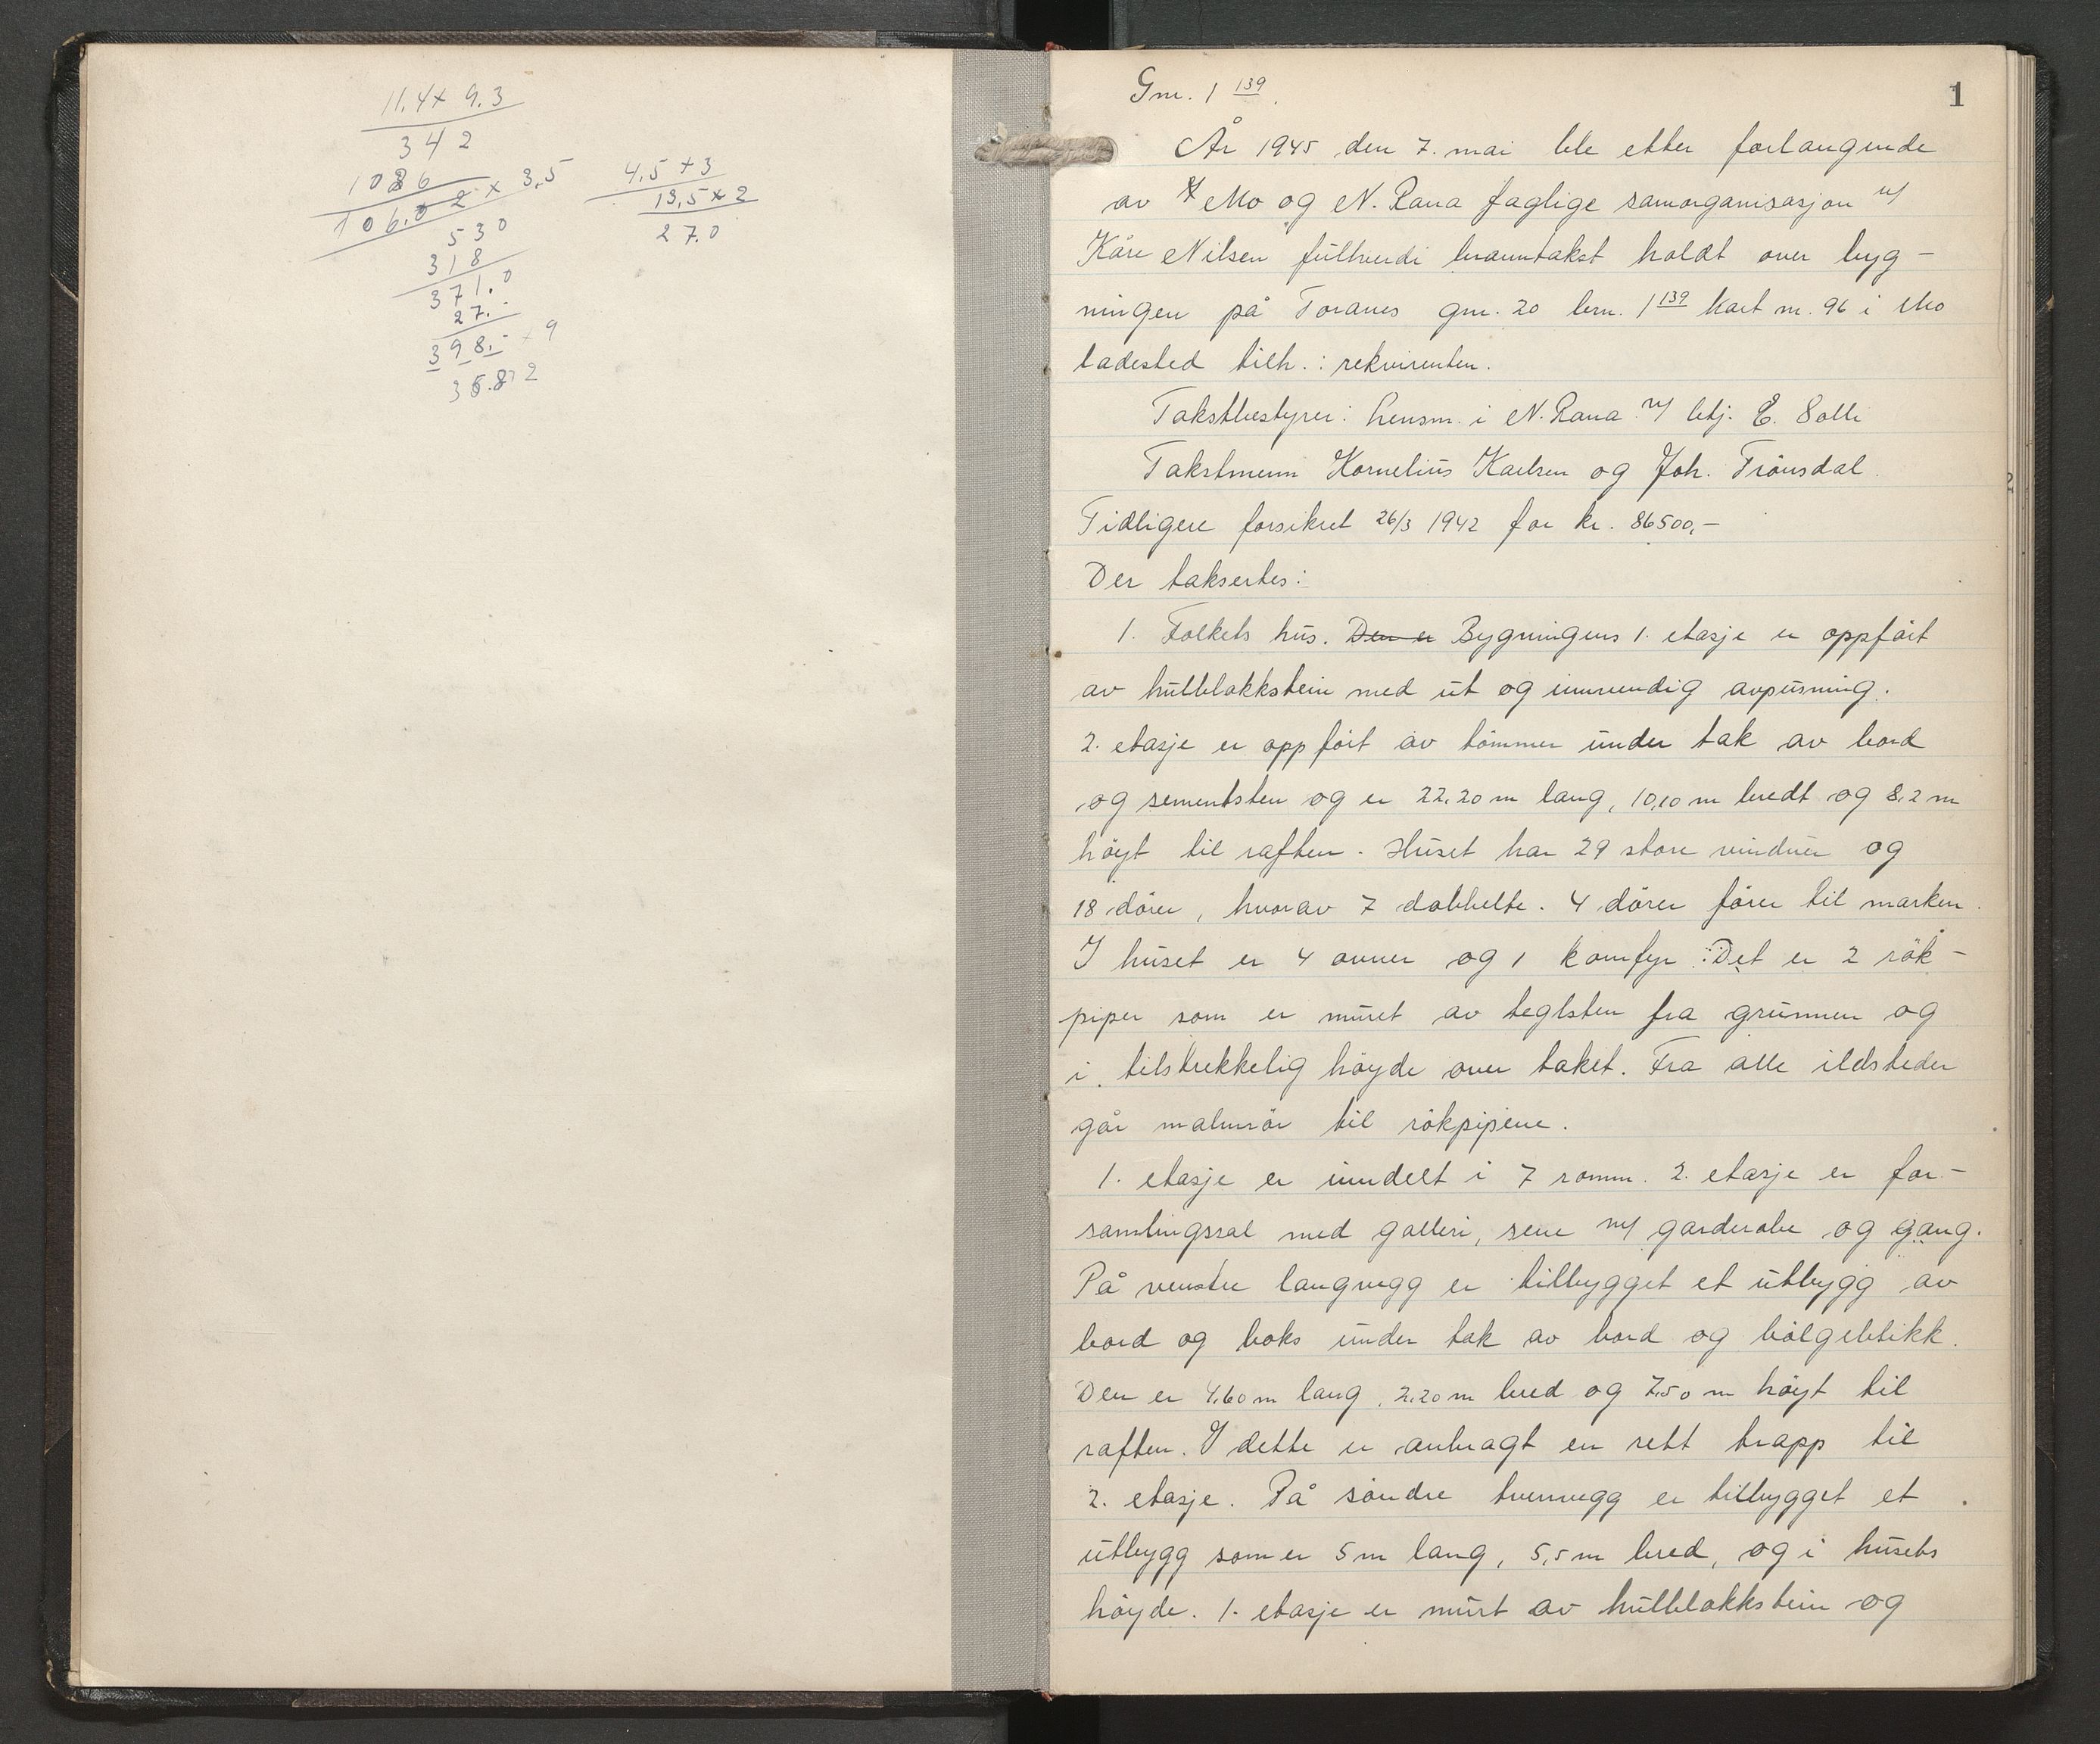 11.4 x 9.3
342
1026
106.02 x 3,5
530
318
371.0
27.-
398.- x 9
35.82
4.5 x 3
13,5 x 2
27.0
1
Gnr. 1 139.
År 1945 den 7. mai ble etter forlangende
av Mo og N. Rana faglige samorganisasjon v/
Kåre Nilsen fullverdi branntakst holdt over byg-
ningen på Toranes gnr. 20 brn. 1 139 kart nr. 96 i Mo
ladested tilh.: rekvirenten.
Takstbestyrer: Lensm. i N. Rana v/ btj. E. Solli
Takstmenn Kornelius Karlsen og Joh. Trönsdal.
Tidligere forsikret 26/3 1942 for kr. 86500,-
Der taksertes:
1. Folkets hus. Den er Bygningens 1. etasje er oppfört
av hulblokkstein med ut og innvendig avpusning.
2. etasje er oppfört av tömmer under tak av bord
og sementsten og er 22,20 m lang, 10,10 m bredt og 8,2 m
höyt til raften. Huset har 29 store vinduer og
18 dörer, hvorav 7 dobbelte. 4 dörer förer til marken.
I huset er 4 ovner og 1 komfyr. Det er 2 rök-
piper som er muret av teglsten fra grunnen og
i tilstrekkelig höyde over taket. Fra alle ildsteder
går malmrör til rökpipene.
1. etasje er inndelt i 7 romm. 2. etasje er for-
samlingssal med galleri, sene m/ garderobe og gang.
På venstre langvegg er tilbygget et utbygg av
bord og boks under tak av bord og bölgeblikk.
Den er 4,60 m lang, 2,20 m bred og 7,50 m höyt til
raften. I dette er anbragt en rett trapp til
2. etasje. På söndre tverrvegg er tilbygget et
utbygg som er 5 m lang, 5,5 m bred, og i husets
höyde. 1. etasje er murt av hulblokkstein og